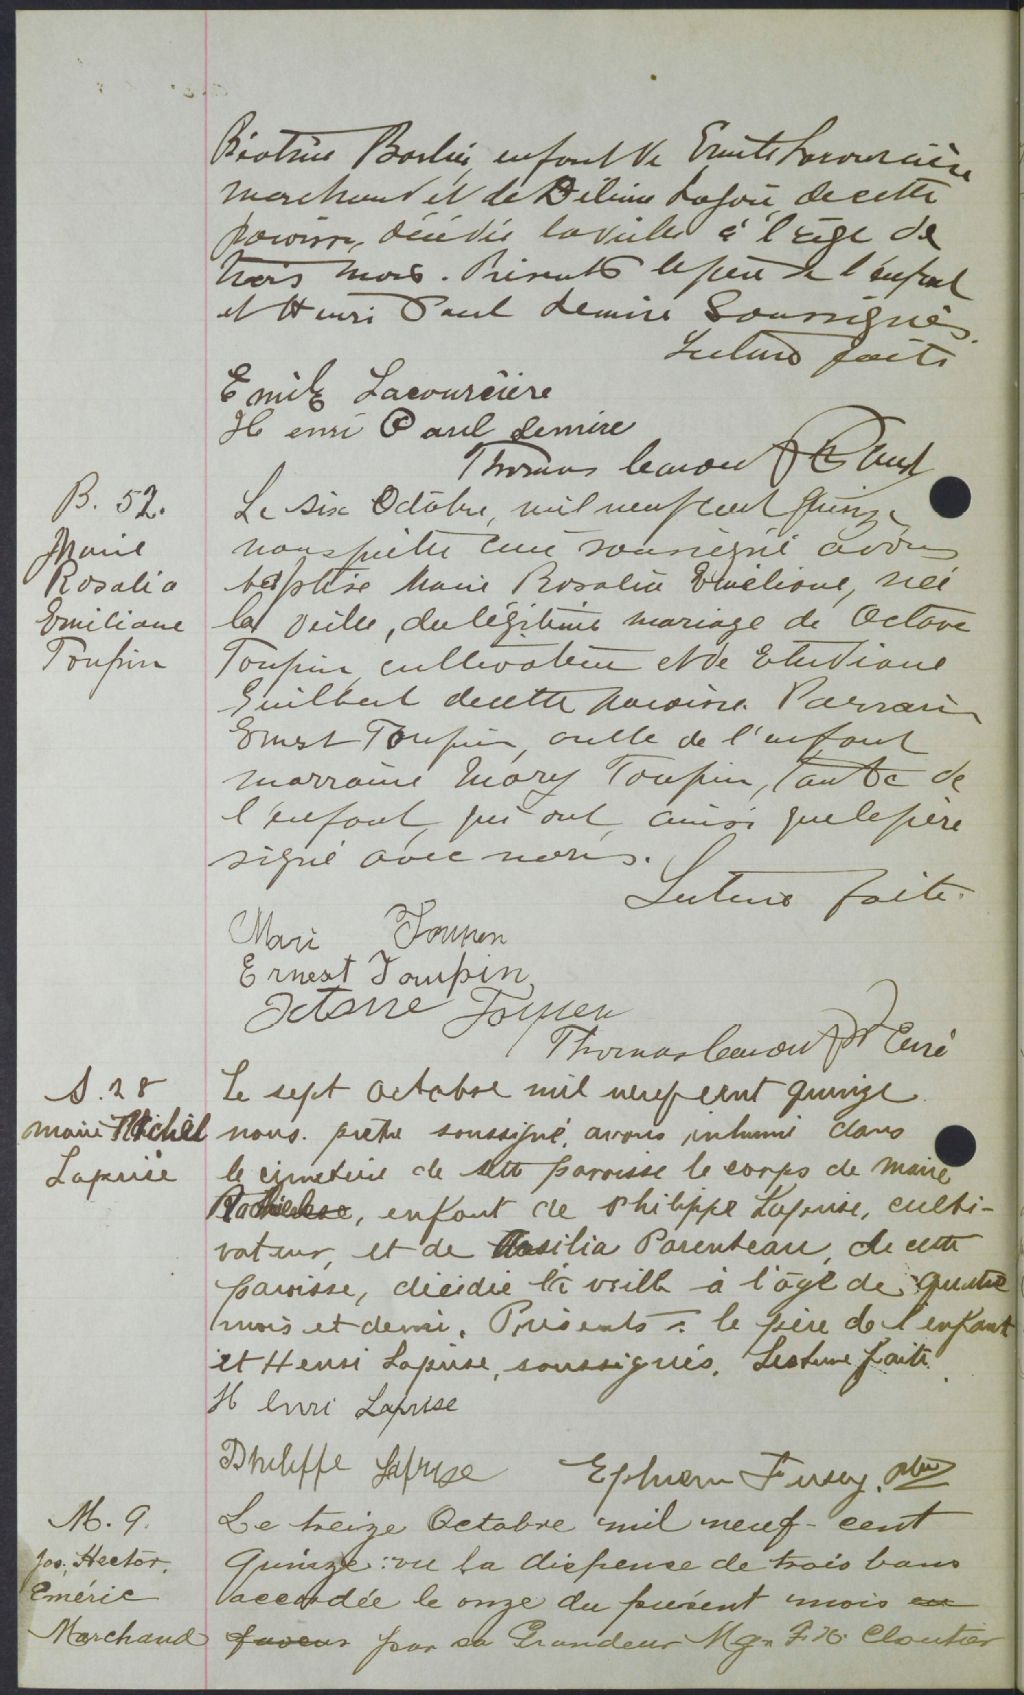 Béatrice Basilie, enfant de Emile Lacourcière
marchand et de Délima Lajoie, de cette
paroisse, décédée la veille à l'âge de
trois mois. Présents le père de l'enfant
et Henri Paul Lemire Soussignés.
Lecture faite
Emile Lacourcière
Henri Paul Lemire
Thomas Caron Ptr Curé
B. 52.
Marie
Rosalia
Emiliane
Toupin
Le six Octobre, mil neuf cent quinze
nous prêtre curé soussigné avons
baptisé Marie Rosalia Emiliane, née
la veille, du légitime mariage de Octave
Toupin, cultivateur et de
Guilbert de cette paroisse. Parrain
Ernest Toupin, oncle de l'enfant
marraine Mary Toupin, tante de
l'enfant, qui ont, ainsi que le père
signé avec nous.
Lecture faite.
Mari Toupen
Ernest Toupin
Octave Toupen
Thomas Caron Ptr Curé
S. 28
Marie
Laprise
Le sept octobre mil neuf cent quinze
nous prêtre soussigné, avons inhumé dans
le cimetière de cette paroisse le corps de Marie
enfant de Philippe Laprise, culti-
vateur, et de Parenteau, de cette
paroisse, décédée la veille à l'âge de quatre
mois et demi. Présents : le père de l'enfant
et Henri Laprise, soussignés. Lecture faite.
Henri Laprise
Philippe Laprise Ephrem ptre
M. 9.
Jos. Hector.
Eméric
Marchand
Le treize Octobre mil neuf-cent
Quinze : vu la dispense de trois bans
accordée le onze du présent mois en
faveur par sa Grandeur Mgr F. X. Cloutier